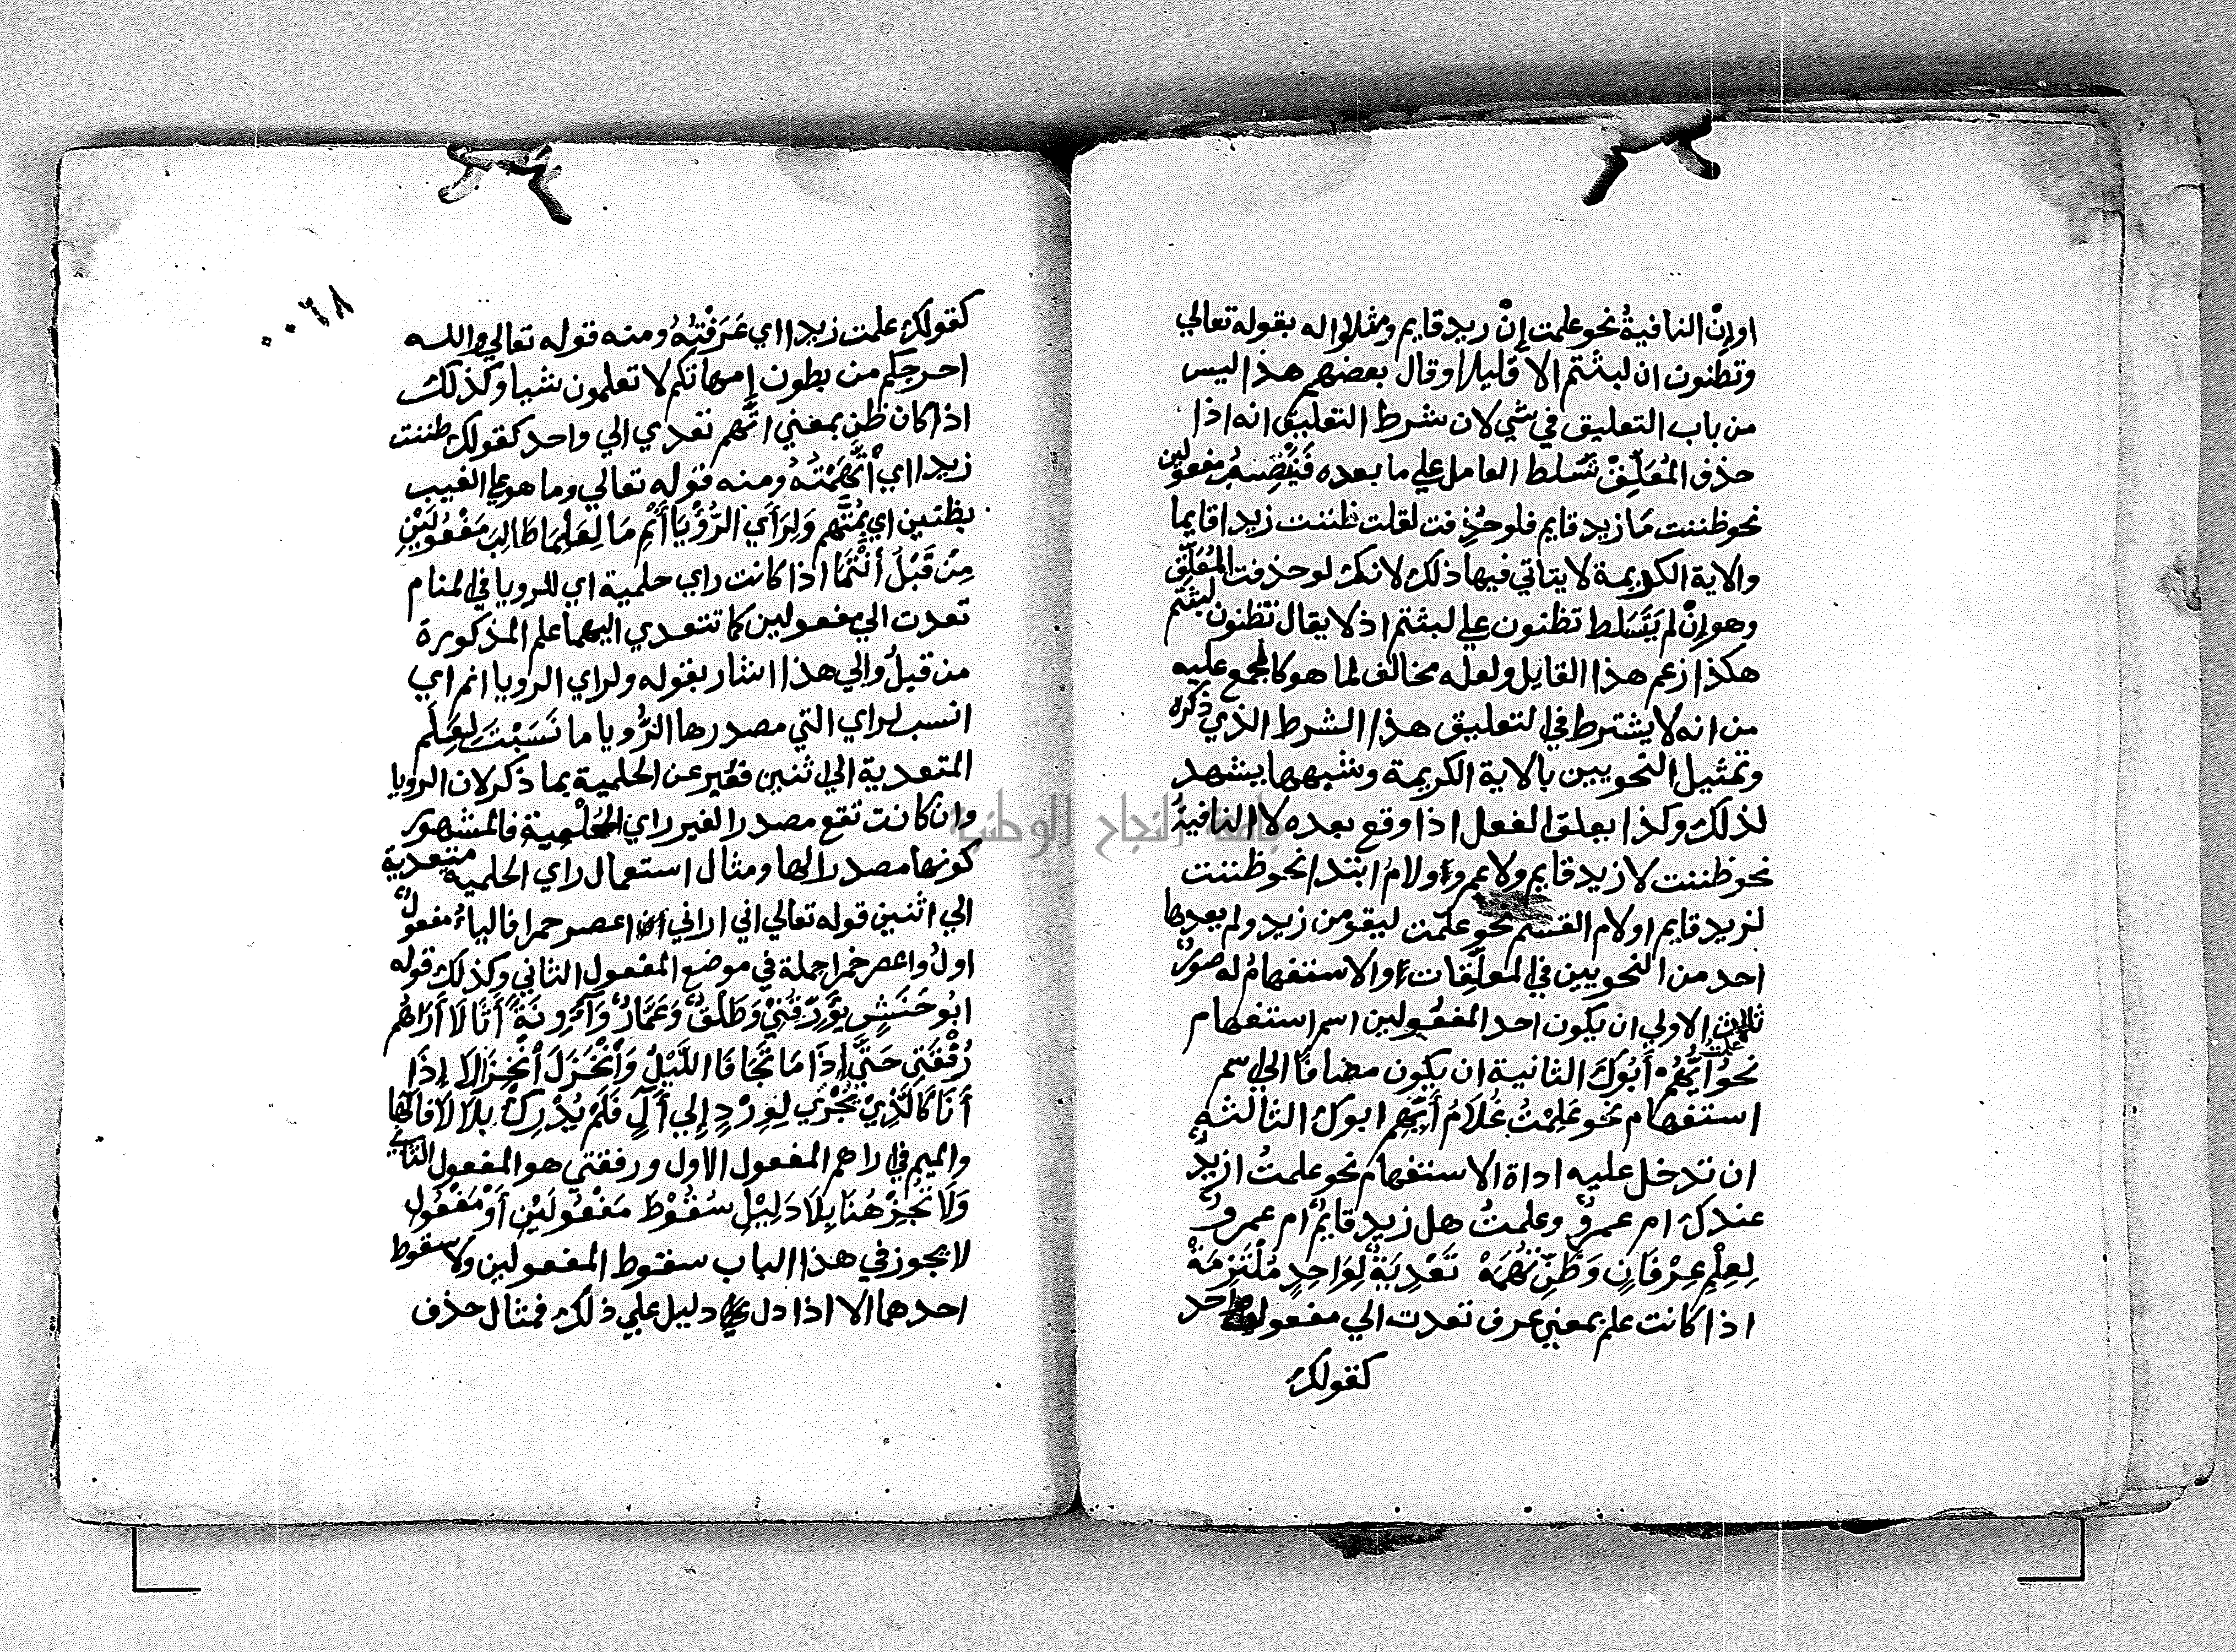 او إنْ النافيةُ نحو علمت إنْ زيد قايم ومثلوا له بقوله تعالي
وتظنون ان لبثتم الا قليلا وقال بعضهم هذا ليس
من باب التعليق في شي لان شرط التعليق انه اذا
حذف المُعَلِّقْ تسَلط العامل علي ما بعده فَيَنْصِبُ مفعولين
نحو ظننت مَا زيد قايم فلو حُذِفت لقلت ظننت زيدا قايما
والاية الكريمة لا يتاتي فيها ذلك لانك لو حذفت المُعَلِّقَ
وهو إنْ لم يَتَسَلط تظنون علي لبثتم اذ لا يقال تظنون لبثتم
هكذا زعم هذا القايل ولعله مخالف لما هو كالمجمع عليه
من انه لا يشترط في التعليق هذا الشرط الذي ذكره
وتمثيل النحويين بالاية الكريمة وشبهها يشهد
لذلك وكذا يعلق الفعل اذا وقع بعده لا النافيةُ
نحو ظننت لا زيد قايم ولا عمرو او لامُ ابتدا نحو ظننت
لزيد قايم او لام القسم نحو علمت ليقومن زيد ولم يعدها
احد من النحويين في المعلِّقات او الاستفهامُ له صورٌ
ثلاث الاولي ان يكون احد المفعولين اسم استفهام
نحو علمتُ ايُّهُمْ أَبُوكَ الثانية ان يكون مضافًا الي اسم
استفهام نحو عَلِمْتُ غُلَامُ أَيِّهِم ابوك الثالثه
ان تدخل عليه اداة الاستفهام نحو علمتُ ازيدٌ
عندك ام عمروٌ وعلمتُ هل زيد قايمٌ ام عمروٌ
لِعِلْمِ عِرْفَانٍ وَظَنٍّ تُهَمَهْ تَعْدِيَةٌ لِوَاحِدٍ مُلْتَزِمَهْ
اذا كانت علم بمعني عرف تعدت الي مفعول واحد
كقولك
٠٠٦٨
كقولك علمت زيدا اي عَرَفْتُهُ ومنه قوله تعالي والله
اخرجكم من بطون امهاتكم لا تعلمون شيا وكذلك
اذا كان ظن بمعني اتَّهم تعدي الي واحد كقولك ظننت
زيدا اي اتَّهَمْتُهُ ومنه قوله تعالي وما هو علي الغيب
بظنين اي بمُتَّهم وَلِرَأَي الرُّؤْيَا أَنْمِ مَا لِعَلِمَا طَالِبَ مَفْعُولَيْنِ
مِنْ قَبْلُ انْتَمَا اذا كانت راي حلمية اي للرويا في المنام
تعدت الي مفعولين كما تتعدي اليهما علم المذكورة
من قبلُ والي هذا اشار بقوله ولراي الرويا انم اي
انسب لراي التي مصدرها الرُّويا ما نَسَبْتَ لِعَلِمَ
المتعدية الي اثنين فعبر عن الحلمية بما ذكر لان الرويا
وان كانت تقع مصدرا لغير راي الحُلْمِية فالمشهور
كونها مصدرا لها ومثال استعمال راي الحلمية متعدية
الي اثنين قوله تعالي اني اراني اعصر خمرا فالياءُ مفعولٌ
اولُ واعصر خمرا جملة في موضع المفعول الثاني وكذلك قوله
ابُو حَنَشٍ يُؤَرِّقُنِي وَطَلْقٌ وَعَمَّارٌ وَآوِنَةً أَثَالَا أَرَاهُم
رُفْقَتِي حَتَّي إِذَا مَا تَجَافَا اللَّيْلُ وَانْخَزَلَ انْخِزَالَا إِذَا
أَنَا كَالَّذِيْ يَجْرِي لِوِرْدٍ إِلَي آلٍ فَلَمْ يُدْرِكْ بِلَالَا فالها
والميم في اراهم المفعول الاول ورفقتي هو المفعول الثاني
وَلَا تُجِزْ هُنَا بِلَا دَلِيْلِ سُقُوْطَ مَفْعُولَيْنِ أَوْ مَفْعُولِ
لا يجوز في هذا الباب سقوط المفعولين ولا سقوط
احدهما الا اذا دل دليل علي ذلك فمثال حذف
جامعة النجاح الوطنية